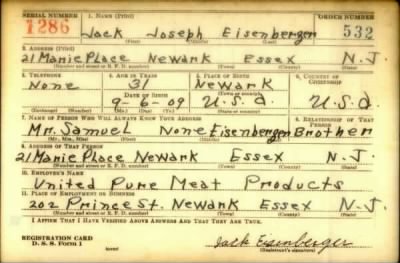 SERIAL NUMBER 1. NAME (Print) ORDER NUMBER
1286 Jack Joseph Eisenberger 532
(First) (Middle) (Last)
2. ADDRESS (Print)
21 Marie Place Newark Essex N.J.
(Number and street or R. F. D. number) (Town) (County) (State)
3. TELEPHONE 4. AGE IN YEARS 5. PLACE OF BIRTH 6. COUNTRY OF CITIZENSHIP
None 31 Newark
DATE OF BIRTH (Town or county)
9-6-09 U.S.a. U.S.a.
(Exchange) (Number) (Mo.) (Day) (Yr.) (State or country)
7. NAME OF PERSON WHO WILL ALWAYS KNOW YOUR ADDRESS 8. RELATIONSHIP OF THAT PERSON
Mr. Samuel None Eisenberger Brother
(Mr., Mrs., Miss) (First) (Middle) (Last)
9. ADDRESS OF THAT PERSON
21 Marie Place Newark Essex N.J.
(Number and street or R. F. D. number) (Town) (County) (State)
10. EMPLOYER'S NAME
United Pure Meat Products
11. PLACE OF EMPLOYMENT OR BUSINESS
202 Prince St. Newark Essex N.J.
(Number and street or R. F. D. number) (Town) (County) (State)
I AFFIRM THAT I HAVE VERIFIED ABOVE ANSWERS AND THAT THEY ARE TRUE.
REGISTRATION CARD
D. S. S. Form 1 (over) Jack Eisenberger
(Registrant's signature)